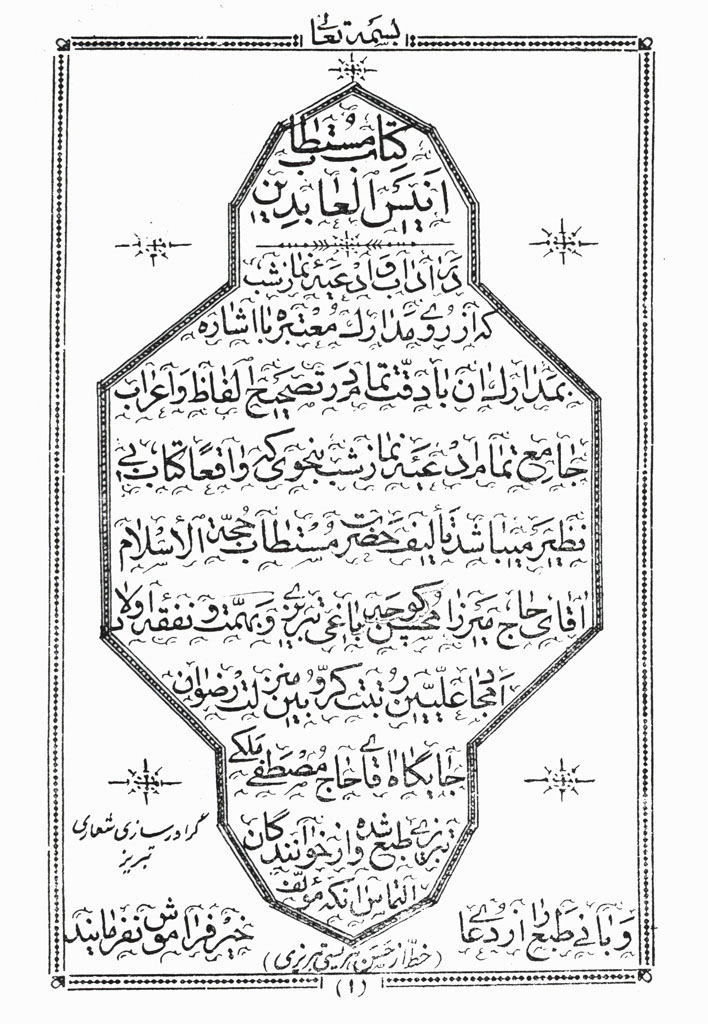 بسمه تعالی
کتاب مستطاب
انیس العابدین
در آداب و ادعیهٔ نماز شب
که از روی مدارک معتبره با اشاره
بمدارک آن با دقت تمام در تصحیح الفاظ و اعراب
جامع تمام ادعیه نماز شب بنحوی که واقعاً کتاب بی
نظیر میباشد تألیف حضرت مستطاب حجة الأسلام
آقای حاج میرزا محسن کوچه باغی تبریزی و بهمت و نفقه اولاد
امجاد علیین رتبت کروبین منزلت رضوان
جایگاه آقای حاج مصطفی ملکی
تبریزی طبع شده و از خوانندگان
التماس آنکه مؤلف
و بانی طبع را از دعای خیر فراموش نفرمایند
گراورسازی شعاری
تبریز
(خط از حسن هریسی تبریزی)
(۱)